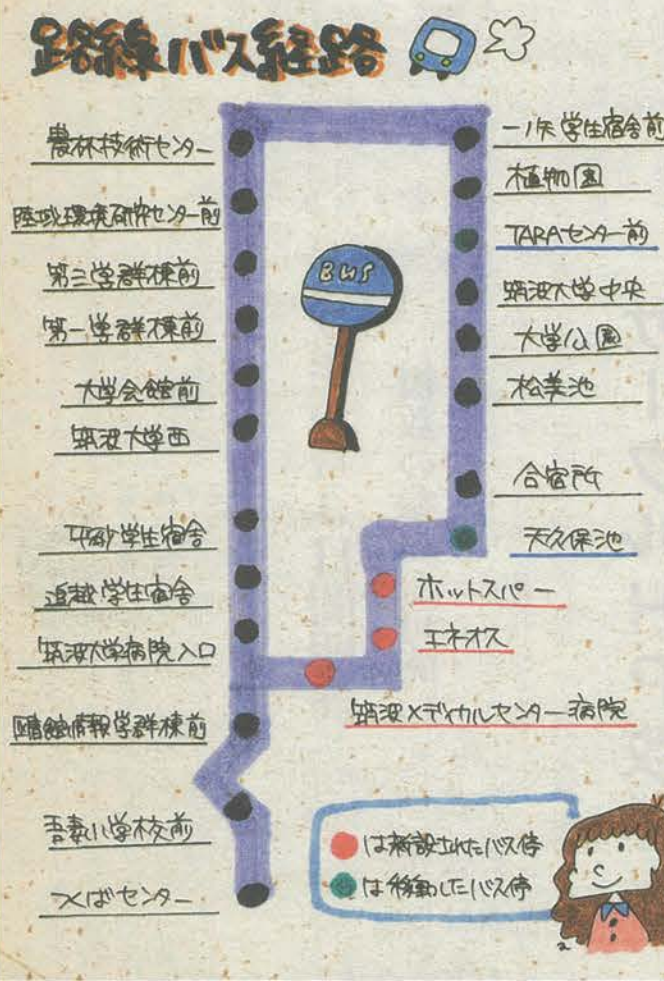 路線バス経路
農林技術センター
陸域環境研究センター前
第三学群棟前
第一学群棟前
大学会館前
筑波大学西
平砂学生宿舎
追越学生宿舎
筑波大学病院入口
図書館情報学群棟前
吾妻小学校前
つくばセンター
BUS
一ノ矢学生宿舎前
植物園
TARAセンター前
筑波大学中央
大学公園
松美池
合宿所
天久保池
ホットスパー
エネオス
筑波メディカルセンター病院
は新設されたバス停
は移動したバス停